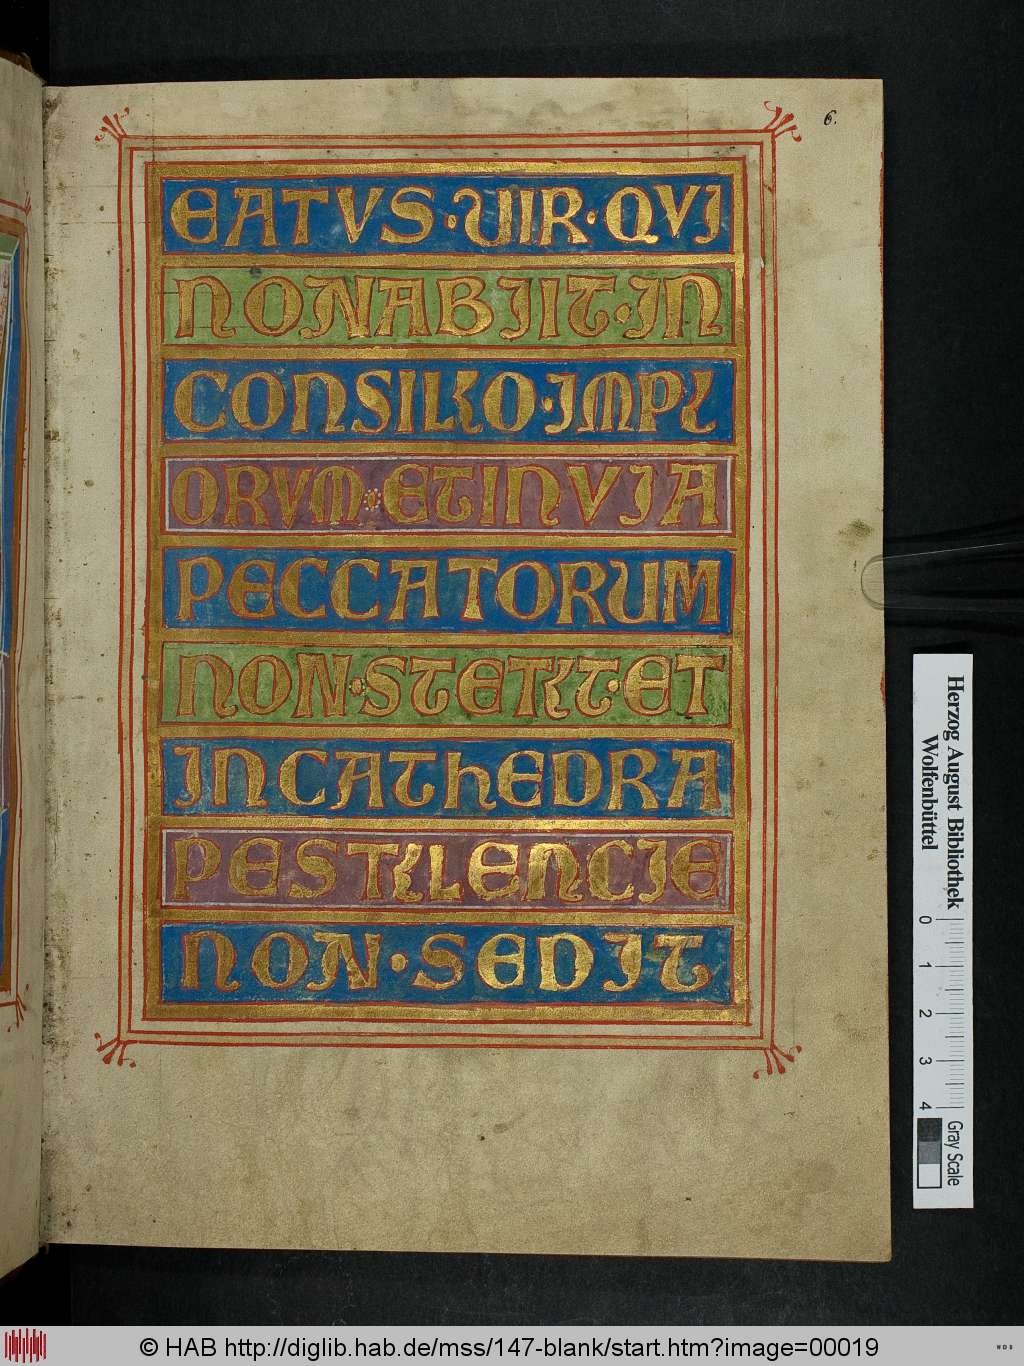 6.
EATVS · UIR · QVI
NON ABIIT · IN
CONSILIO · IMPI
ORVM · ET IN VIA
PECCATORUM
NON · STETIT · ET
IN CAThEDRA
PESTILENCIE
NON · SEDIT
Herzog August Bibliothek
Wolfenbüttel
0 1 2 3 4
Gray Scale
© HAB http://diglib.hab.de/mss/147-blank/start.htm?image=00019